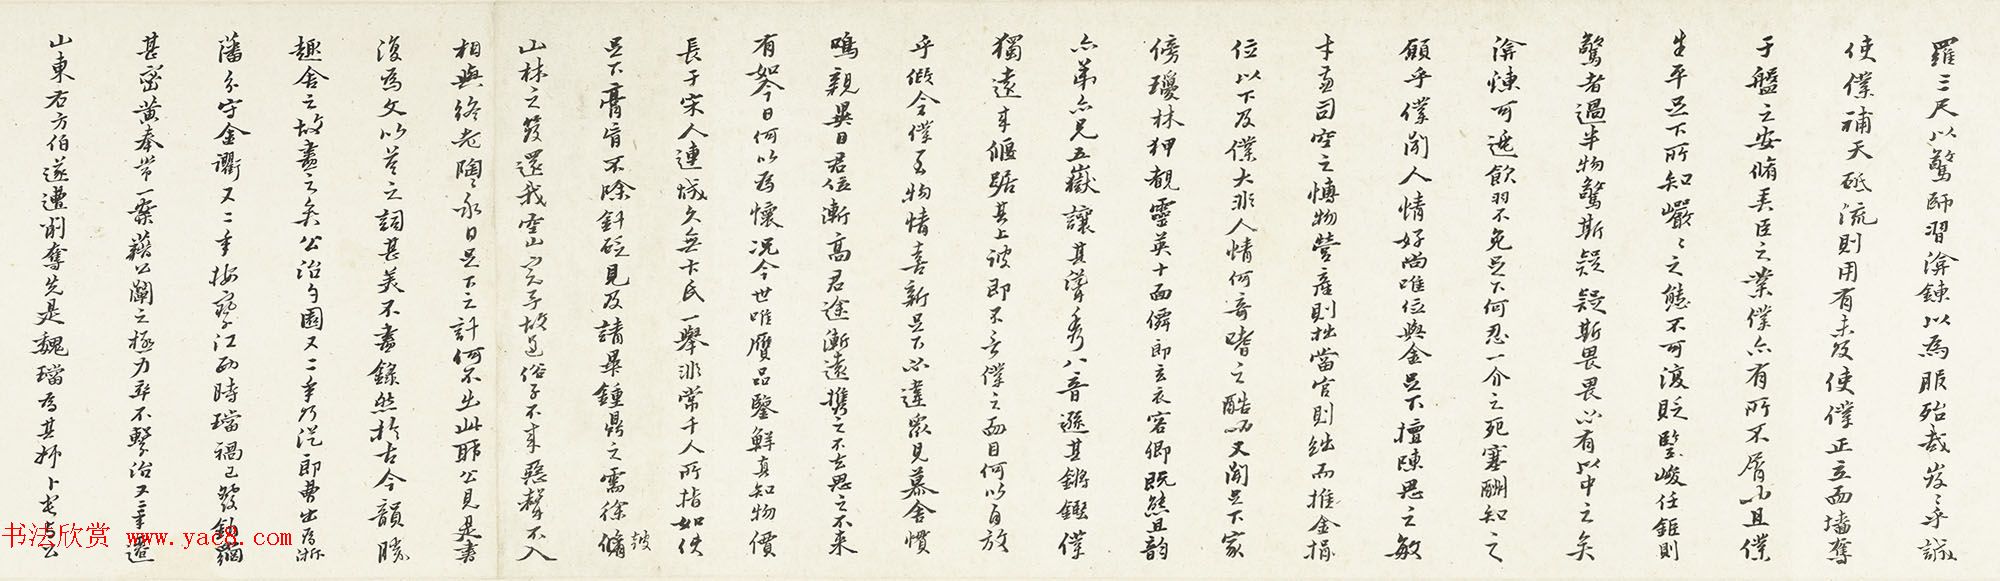 羅三尺以驚師習渝鍊以為服殆哉岌乎誠
使僕補天砥流則用有未及使僕正立而墻奪
于盤之安脩美臣之業僕亦有所不屑也且僕
生平足下所知巖之態不可復貶堅峻任鉅則
驚者過半物驚斯疑疑斯畏畏必有以中之矣
渝煉可遁飲羽不免足下何忍一介之死塞酬知之
願乎僕閱人情好尚唯位與金足下擅陳思之敏
才兼司空之慱物營產則拙當官則絀而推金捐
位以下及僕大非人情何奇嗜之酷也又聞足下家
傍瓊林狎覩靈英十面儕即玄衣客卿既然且韵
亦弟亦兄五嶽讓其漭秀八音遜其鏘鏗僕
獨遠來偃踞其上彼即不言僕之面目何以自放
乎假令僕至物情喜新足下必違眾見慕舍慣
鳴親異日君位漸高君途漸遠攜之不去思之不來
有如今日何以為懷況今世唯贋品鑒鮮真知物價
長于宋人連城久無卞氏一舉非常千人所指如使
足下膏肓不除針砭見及請畢鍾鼎之需徐脩
山林之袯還我空山完子故過俗子不來惡聲不入
相與終老陶永日足下之計何不出此耶公見是書
復為文以答之詞甚美不盡錄然於古今韻勝
趣舍之故盡之矣公治勺園又二年乃從郎曹出為浙
藩分守金衢又二年按察江西時璫禍已發鉤網
甚密黃奉常一案藉公闢之極力卒不繫治又三年遷
山東右方伯遂遭削奪先是魏璫為其姊卜宅与公